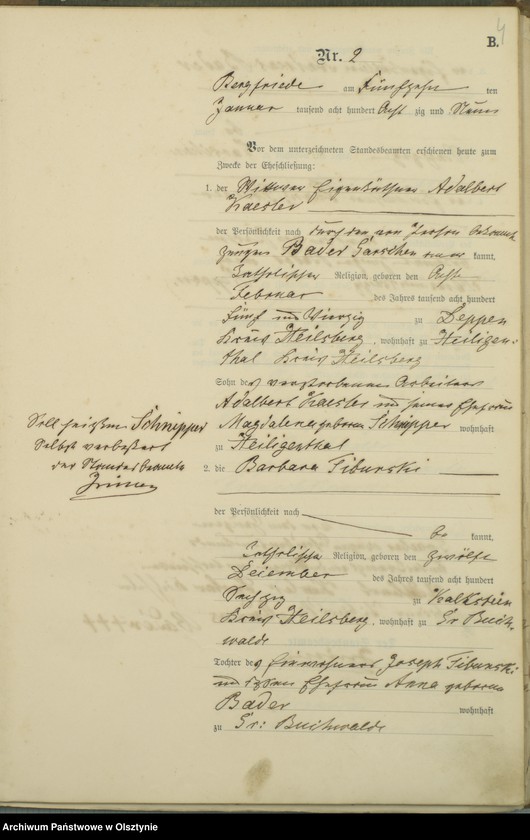 4
B.
Nr. 2
Bergfriede am Fünfzehn ten
Januar tausend acht hundert Acht zig und Neun
Vor dem unterzeichneten Standesbeamten erschienen heute zum
Zwecke der Eheschließung:
1. der Wittwer Eigenkäthner Adalbert
Kaesler
der Persönlichkeit nach durch den von Person
Bader Garschen kannt,
katholischer Religion, geboren den Acht
Februar des Jahres tausend acht hundert
Fünf und Vierzig zu Leppen
Kreis Heilsberg, wohnhaft zu Heiligen-
thal Kreis Heilsberg
Sohn des verstorbenen Arbeiters
Adalbert Kaesler und seiner Ehefrau
Magdalena geboren Schnipper wohnhaft
zu Heiligenthal
Soll heißen Schnipper
Selbst verbessert
der Standesbeamte
2. die Barbara Tiburski
der Persönlichkeit nach
be kannt,
katholische Religion, geboren den zwölften
Dezember des Jahres tausend acht hundert
Sechzig zu Kalkstein
Kreis Heilsberg, wohnhaft zu Gr Buch-
walde
Tochter des Einwohners Joseph Tiburski
und dessen Ehefrau Anna geboren
Bader wohnhaft
zu Gr: Buchwalde
Archiwum Państwowe w Olsztynie